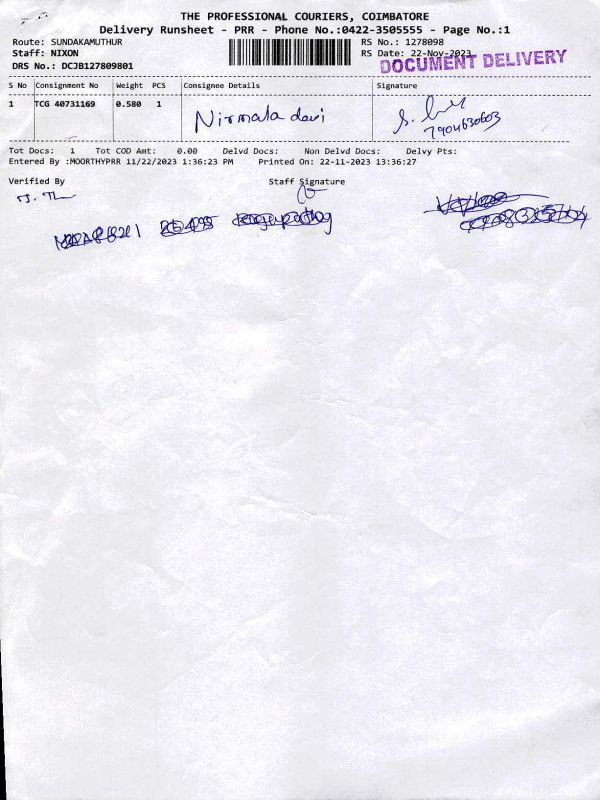 THE PROFESSIONAL COURIERS, COIMBATORE
Delivery Runsheet - PRR - Phone No.:0422-3505555 - Page No.:1
Route: SUNDAKAMUTHUR RS No.: 1278098
Staff: NIXON RS Date: 22-Nov-2023
DRS No.: DCJB127809801 DOCUMENT DELIVERY
S No Consignment No Weight PCS Consignee Details Signature
1 TCG 40731169 0.580 1 Nirmala devi
7904630603
Tot Docs: 1 Tot COD Amt: 0.00 Delvd Docs: Non Delvd Docs: Delvy Pts:
Entered By :MOORTHYPRR 11/22/2023 1:36:23 PM Printed On: 22-11-2023 13:36:27
Verified By Staff Signature